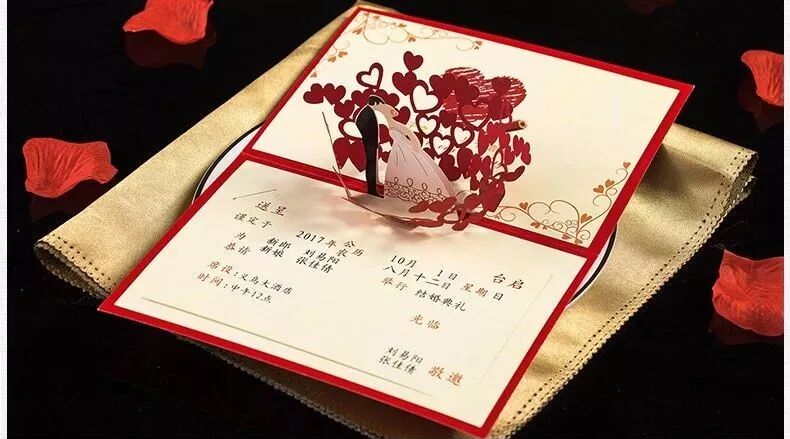 送呈 台启
谨定于 2017年 公历 10月 1日 星期日
农历 八月十二日
为 新郎 刘易阳 新娘 张佳倩 举行 结婚典礼
恭请 光临
席设：义乌大酒店
时间：中午12点
刘易阳
张佳倩 敬邀